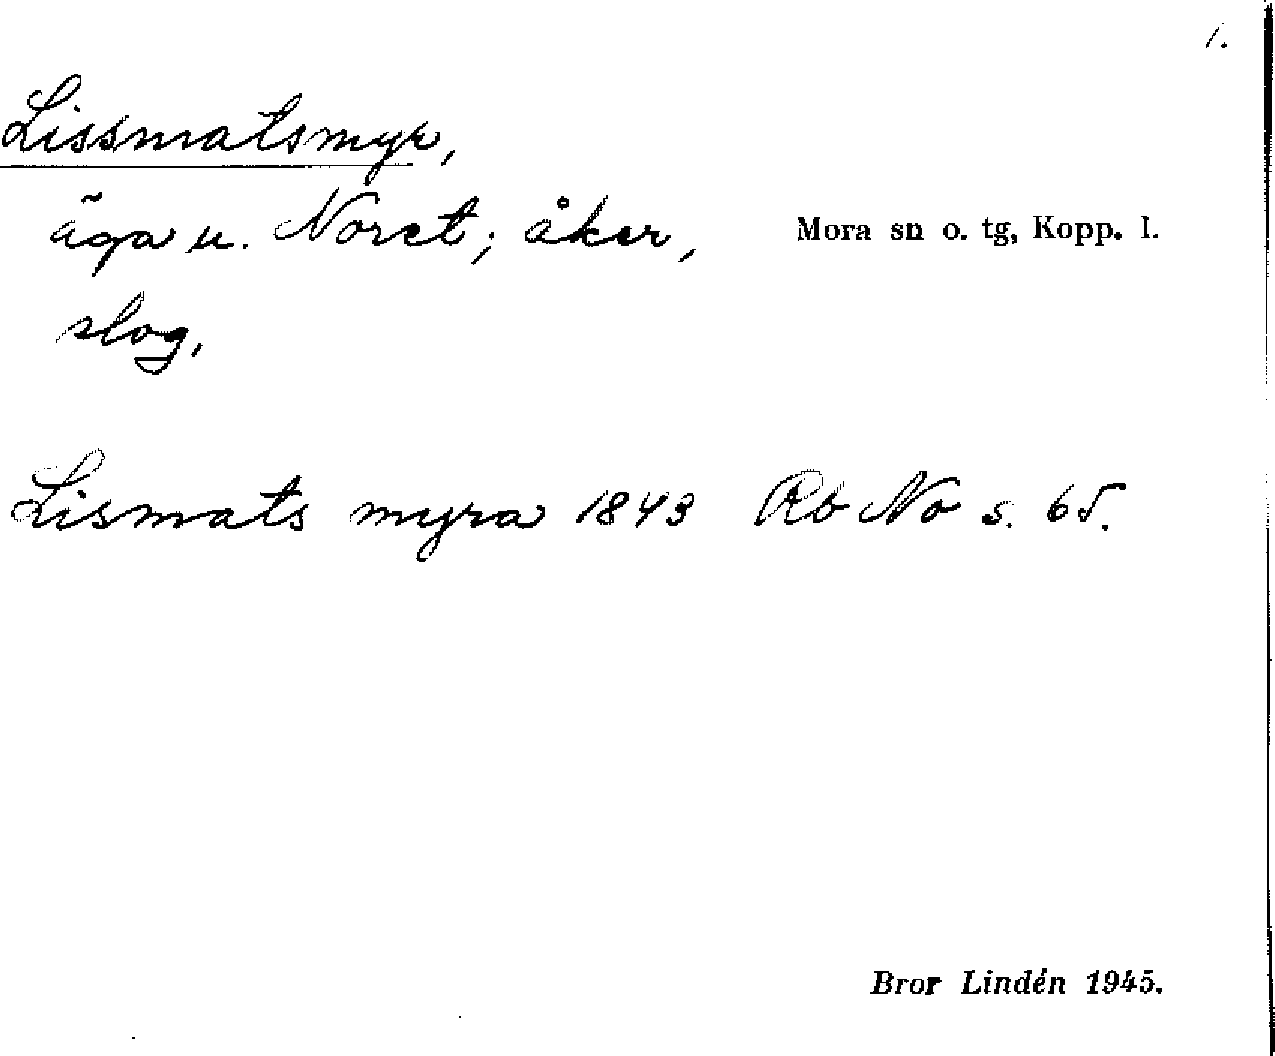 1.
Lissmatsmyr,
äga u. Noret; åker,
Mora sn o. tg, Kopp. l.
slog,
Lismats myra 1843 Rb No s. 65.
Bror Lindén 1945.